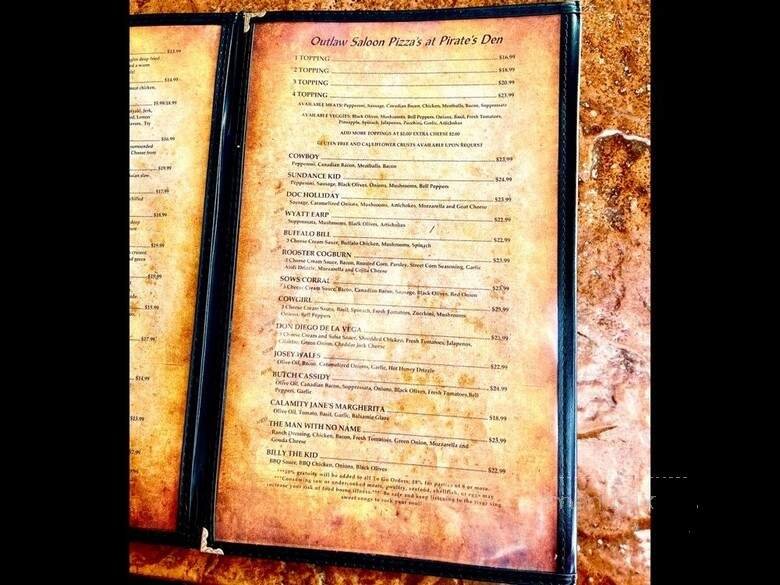 $13.99
$14.99
meat chicken,
$9.99/18.99
$16.99
$19.99
$17.99
$18.99
$19.99
$15.99
$17.99
$14.99
$13.99
Outlaw Saloon Pizza's at Pirate's Den
1 TOPPING $16.99
2 TOPPING $18.99
3 TOPPING $20.99
4 TOPPING $23.99
AVAILABLE MEATS: Pepperoni, Sausage, Canadian Bacon, Chicken, Meatballs, Bacon, Soppressata
AVAILABLE VEGGIES: Black Olives, Mushrooms, Bell Peppers, Onions, Basil, Fresh Tomatoes,
Pineapple, Spinach, Jalapenos, Zucchini, Garlic, Artichokes
ADD MORE TOPPINGS AT $2.00/ EXTRA CHEESE $2.00
GLUTEN FREE AND CAULIFLOWER CRUSTS AVAILABLE UPON REQUEST
COWBOY $23.99
Pepperoni, Canadian Bacon, Meatballs, Bacon
SUNDANCE KID $24.99
Pepperoni, Sausage, Black Olives, Onions, Mushrooms, Bell Peppers
DOC HOLLIDAY $23.99
Sausage, Caramelized Onions, Mushrooms, Artichokes, Mozzarella and Goat Cheese
WYATT EARP $22.99
Soppressata, Mushrooms, Black Olives, Artichokes
BUFFALO BILL $22.99
3 Cheese Cream Sauce, Buffalo Chicken, Mushrooms, Spinach
ROOSTER COGBURN $23.99
3 Cheese Cream Sauce, Bacon, Roasted Corn, Parsley, Street Corn Seasoning, Garlic
Aioli Drizzle, Mozzarella and Cojita Cheese
SOWS CORRAL $23.99
3 Cheese Cream Sauce, Bacon, Canadian Bacon, Sausage, Black Olives, Red Onion
COWGIRL $23.99
3 Cheese Cream Sauce, Basil, Spinach, Fresh Tomatoes, Zucchini, Mushrooms
Onions, Bell Peppers
DON DIEGO DE LA VEGA $23.99
3 Cheese Cream and Salsa Sauce, Shredded Chicken, Fresh Tomatoes, Jalapenos,
Cilantro, Green Onion, Cheddar Jack Cheese
JOSEY WALES $22.99
Olive Oil, Bacon, Caramelized Onions, Garlic, Hot Honey Drizzle
BUTCH CASSIDY $24.99
Olive Oil, Canadian Bacon, Soppressata, Onions, Black Olives, Fresh Tomatoes, Bell
Peppers, Garlic
CALAMITY JANE'S MARGHERITA $18.99
Olive Oil, Tomato, Basil, Garlic, Balsamic Glaze
THE MAN WITH NO NAME $23.99
Ranch Dressing, Chicken, Bacon, Fresh Tomatoes, Green Onion, Mozzarella and
Gouda Cheese
BILLY THE KID $22.99
BBQ Sauce, BBQ Chicken, Onions, Black Olives
***10% gratuity will be added to all To Go Orders; 18% for parties of 8 or more.
***Consuming raw or undercooked meats, poultry, seafood, shellfish, or eggs may
increase your risk of food borne illness.*** Be safe and keep listening to the river sing
sweet songs to rock your soul!